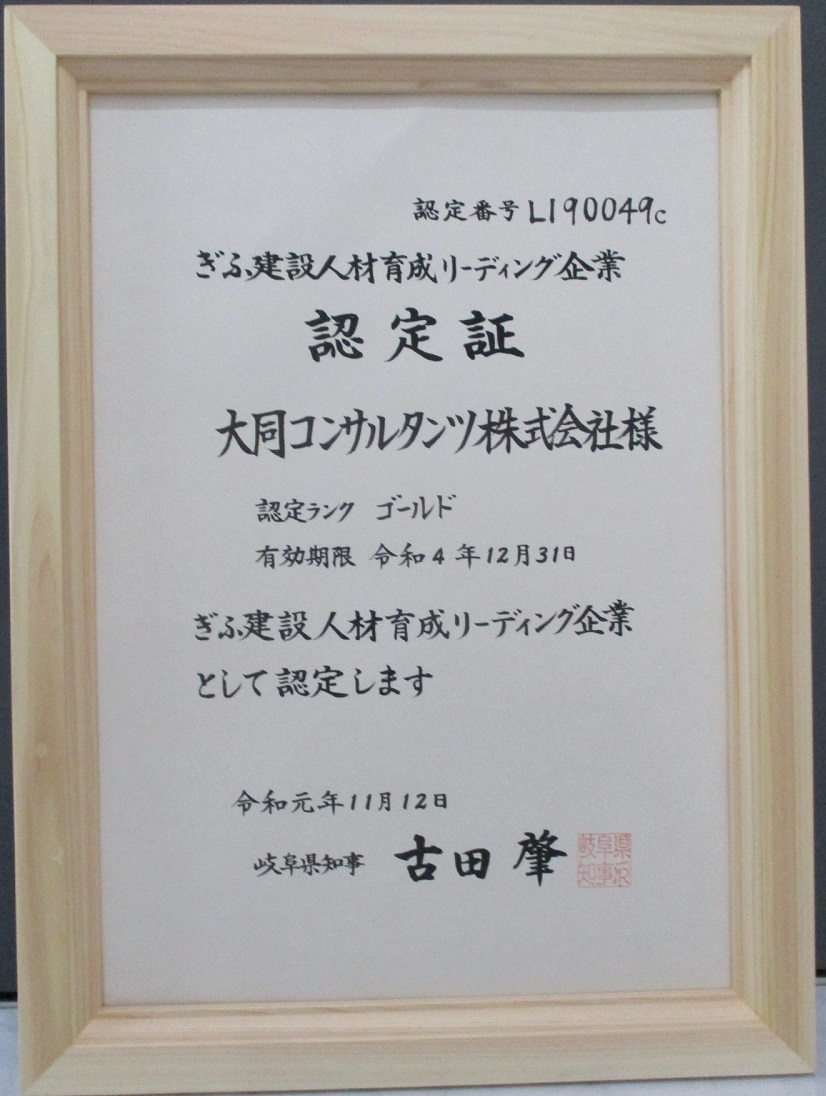 認定番号 L190049c
ぎふ建設人材育成リーディング企業
認定証
大同コンサルタンツ株式会社様
認定ランク ゴールド
有効期限 令和4年12月31日
ぎふ建設人材育成リーディング企業
として認定します
令和元年11月12日
岐阜県知事 古田 肇
岐阜県知事印